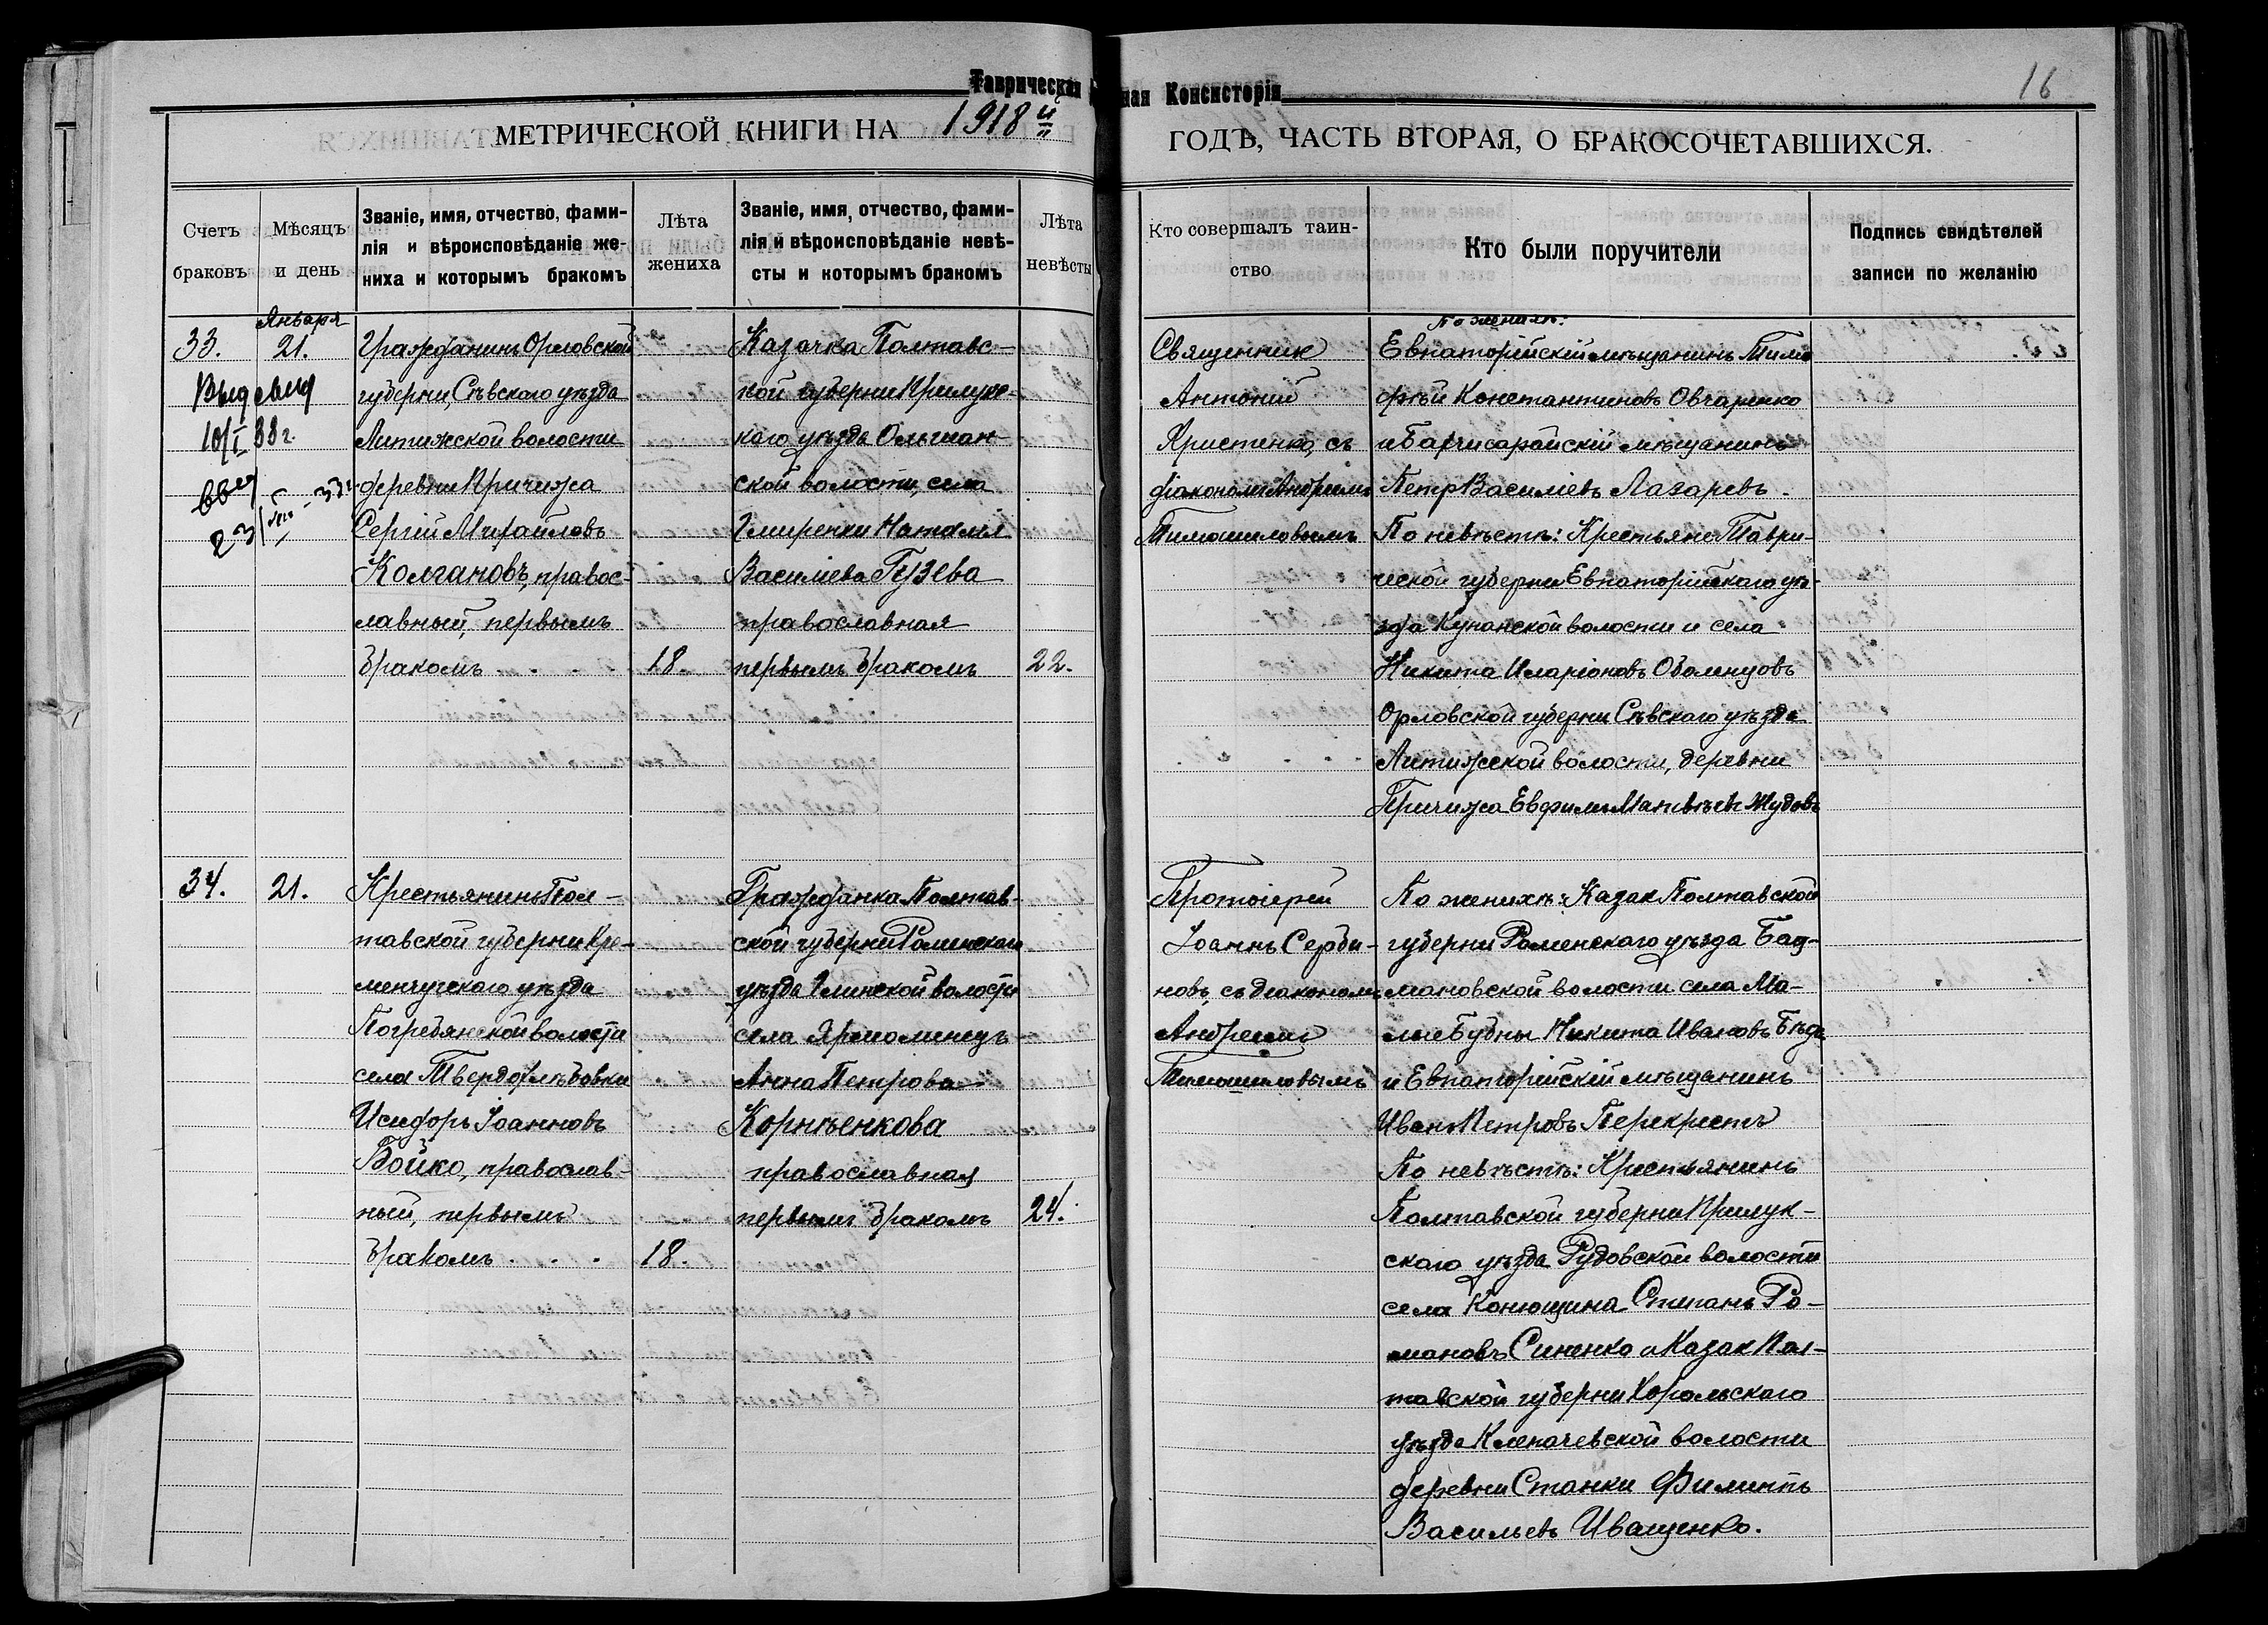 Таврическая
ная Консисторія
16
МЕТРИЧЕСКОЙ КНИГИ НА 1918й
ГОДЪ, ЧАСТЬ ВТОРАЯ, О БРАКОСОЧЕТАВШИХСЯ.
Счетъ браковъ
Мѣсяцъ и день
Званіе, имя, отчество, фами-
лія и вѣроисповѣданіе же-
ниха и которымъ бракомъ
Лѣта
жениха
Званіе, имя, отчество, фами-
лія и вѣроисповѣданіе невѣ-
сты и которымъ бракомъ
Лѣта
невѣсты
Кто совершалъ таин-
ство
Кто были поручители
Подпись свидѣтелей
записи по желанію
Января
33. 21.
10/I 33 г.
Гражданинъ Орловской
губерни, Сѣвскаго уѣзда
Литижской волости
деревни Причижа
Сергій Михайловъ
Колгановъ, правос-
лавный, первымъ
бракомъ . . . .
18.
Казачка Полтавс-
кой губерни Прилукс-
каго уѣзда Ольшан-
ской волости, села
Гмиренки Наталья
Василіева Гузева
православная
первымъ бракомъ
22.
Священник
Антоний
Христенко, съ
діакономъ Андреемъ
Тимошиловымъ
По жениху:
Евпаторійскій мѣщанинъ Тимо
фѣй Константиновъ Овчаренко
и Бахчисарайскій мѣщанинъ
Петр Василіевъ Лазаревъ.
По невѣстѣ: Крестьяне Таври-
ческой губерни Евпаторійскаго уѣ-
зда Кунанской волости и села
Никита Иларіоновъ Оболенцовъ
Орловской губерни Сѣвскаго уѣзда
Литижской волости, деревни
Причижа Евфимъ Матвѣевъ Жудовъ
34. 21.
Крестьянинъ Пол-
тавской губерни Кре-
менчугскаго уѣзда
Погребянской волости
села Твердохлѣбовки
Исидоръ Іоанновъ
Бойко, православ-
ный, первымъ
бракомъ . . .
18.
Гражданка Полтав-
ской губерни Роменскаго
уѣзда Глинской волости
села Ярмолинецъ
Анна Петрова
Корнѣенкова
православная
первымъ бракомъ
24.
Протоіерей
Іоаннъ Серби-
новъ, съ діакономъ
Андреемъ
Тимошиловымъ
По женихѣ: Казак Полтавской
губерни Роменскаго уѣзда Бац-
мановской волости села Ма-
лые Бубны Никита Ивановъ Бѣда
и Евпаторійскій мѣщанинъ
Иван Петровъ Перекрестъ
По невѣстѣ: Крестьянинъ
Полтавской губерни Прилук-
скаго уѣзда Рудовской волости
села Конющина Степанъ Ро-
мановъ Синенко и Казак Пол-
тавской губерни Хорольскаго
уѣзда Клепачевской волости
деревни Станки Филиппъ
Васильевъ Иващенко.